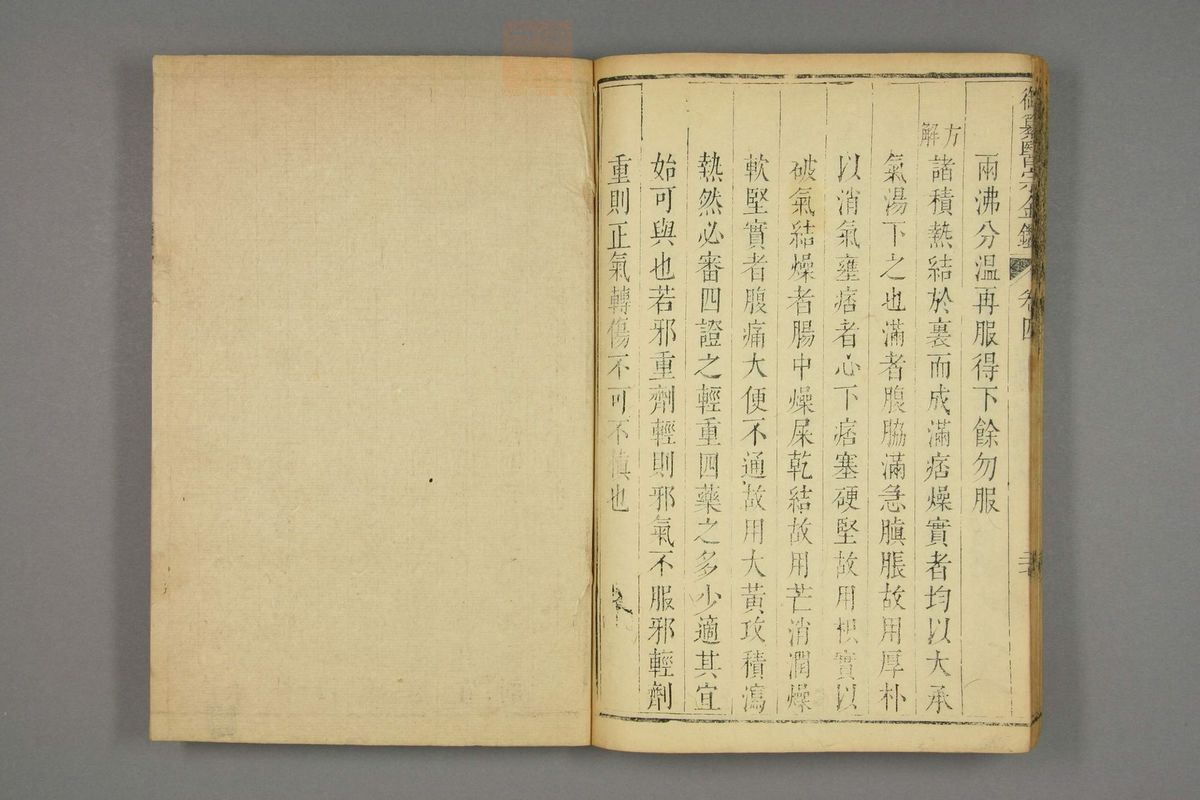 御纂醫宗金鑑 卷四
兩沸分溫再服得下餘勿服
方解
諸積熱結於裏而成滿痞燥實者均以大承
氣湯下之也滿者腹脇滿急䐜脹故用厚朴
以消氣壅痞者心下痞塞硬堅故用枳實以
破氣結燥者腸中燥屎乾結故用芒消潤燥
軟堅實者腹痛大便不通故用大黃攻積瀉
熱然必審四證之輕重四藥之多少適其宜
始可與也若邪重劑輕則邪氣不服邪輕劑
重則正氣轉傷不可不慎也